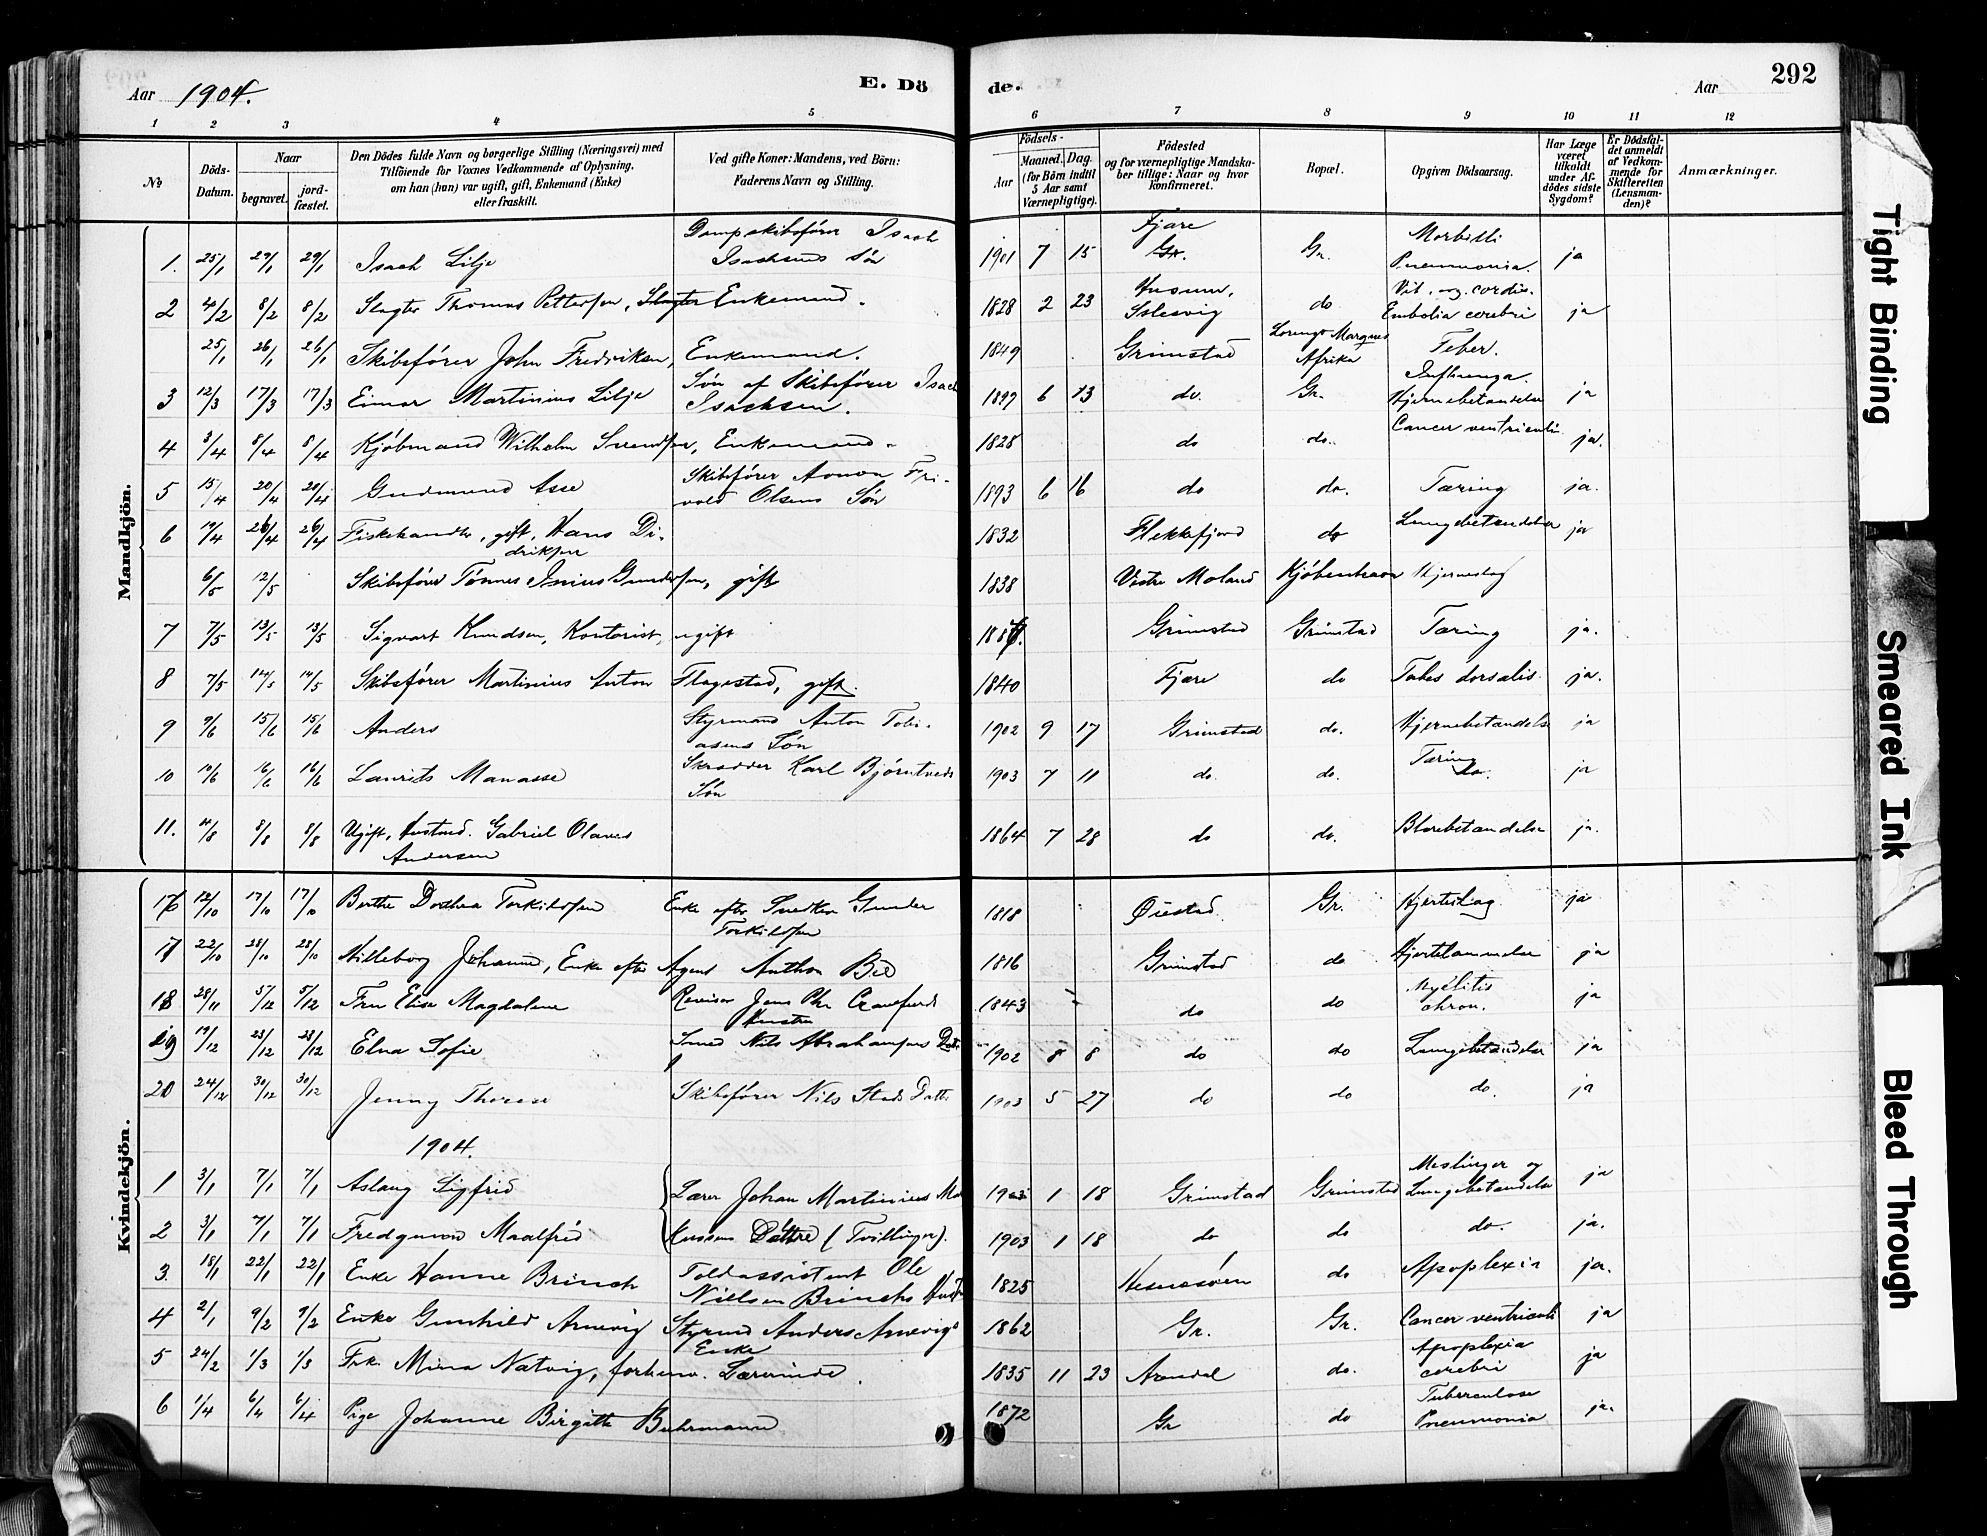 Aar 1904.
E. Dö
de.
Aar
292
1 2 3 4 5 6 7 8 9 10 11 12
No
Döds-Datum.
Naar
begravet.
jord-fæstet.
Den Dödes fulde Navn og borgerlige Stilling (Næringsvei) med
Tilföiende for Voxnes Vedkommende af Oplysning,
om han (hun) var ugift, gift, Enkemand (Enke)
eller fraskilt.
Ved gifte Koner: Mandens, ved Börn:
Faderens Navn og Stilling.
Födsels-
Aar
Maaned. Dag.
(for Börn indtil
5 Aar samt
Værnepligtige).
Födested
og for værnepligtige Mandska-
ber tillige: Naar og hvor
konfirmeret.
Bopæl.
Opgiven Dödsaarsag.
Har Læge
været
tilkaldt
under Af-
dödes sidste
Sygdom?
Er Dödsfal-
det anmeldt
af Vedkom-
mende for
Skifteretten
(Lensman-
den)?
Anmærkninger.
Mandkjön.
1. 25/1 29/1 29/1 Isach Lilje Dampskibsfører Isach Isachsens Søn 1901 7 15 Fjære Gr. Gr. Morbilli Pneumonia. ja
2 4/2 8/2 8/2 Slagter Thomas Pettersen, Slagter Enkemand. 1828 2 23 Husum, Slesvig do Vit. org. cordis. Embolia cerebri ja
25/1 26/1 26/1 Skibsfører John Fredriksen, Enkemand. 1849 Grimstad Lorenzo Marques Afrika Feber.
3 12/3 17/3 17/3 Einar Martinius Lilje Søn af Skibsfører Isach Isachsen. 1897 6 13 do. Gr. Influenza. Hjernebetændelse ja
4 3/4 8/4 8/4 Kjøbmand Wilhelm Svendsen, Enkemand. 1828 do do. Cancer ventriculi ja.
5 15/4 20/4 20/4 Gudmund Asse Skibsfører Aanon Fri-vold Olsens Søn 1893 6 16 do do. Tæring ja.
6 19/4 26/4 26/4 Fiskehandler, gift, Hans Di-driksen 1832 Flekkefjord do Lungebetændelse ja
6/5 12/5 Skibsfører Tønnes Gundersen, gift 1838 Vestre Moland Kjøbenhavn Hjerneslag
7 7/5 13/5 13/5 Sigvart Knudsen, Kontorist, ugift Grimstad Grimstad Tæring ja.
8 7/5 14/5 14/5 Skibsfører Martinius Anton Flagestad, gift. 1840 Fjære do Tabes dorsalis. ja.
9 9/6 15/6 15/6 Anders Styrmand Anton Tobi-asens Søn 1902 9 17 Grimstad do. Hjernebetændelse ja
10 10/6 16/6 16/6 Laurits Manasse Skrædder Karl Bjørntvedts Søn 1903 7 11 do. do. Tæring do. ja
11. 4/8 8/8 8/8 Ugift, Gabriel Olaves Andersen 1864 7 28 do do. Blærebetændelse ja.
Kvindekjön.
16 12/10 17/10 17/10 Berthe Dorthea Torkildsen Enke efter Snedker Gunder Torkildsen 1818 Øiestad. Gr. Hjerteslag ja
17 22/10 28/10 28/10 Villeborg Johanne, Enke efter Agent Anthon Bie 1816 Grimstad do Hjertelammelse ja
18 28/11 5/12 5/12 Fru Elise Magdalene Revisor Jens Chr Crawfurds Hustru 1843 do do Myelitis chron. ja
19 19/12 23/12 23/12 Elna Sofie Smed Nils Abrahamsens Datt. 1902 8 8 do do Lungebetændelse ja
20 24/12 30/12 30/12 Jenny Therese Skibsfører Nils Stads Datter 1903 5 27 do do do. ja
1904.
1 3/1 7/1 7/1 Aslaug Sigfrid Lærer Johan Martinius 1903 1 18 Grimstad Grimstad Meslinger og Lungebetændelse ja
2 3/1 7/1 7/1 Fredgunn Maalfrid Døttre (Tvillinger). 1903 1 18 do do do. ja.
3. 18/1 22/1 22/1 Enke Hanne Brinch Toldassistent Ole Nielsen Brinchs 1825 Hesnesøen do Apoplexia ja.
4 2/1 9/2 9/2 Enke Gunhild Arnevig Styrmd Anders Arnevigs Enke 1862 Gr. Gr. Cancer ventriculi ja
5 24/2 1/3 1/3 Frk. Mina Natvig, forhenv. Lærerinde. 1835 11 23 Arendal do. Apoplexia cerebri ja
6 1/4 6/4 6/4 Pige Johanne Birgitte Buhrmann 1872 Gr do Tuberculose Pneumonia ja.
Tight Binding
Smeared Ink
Bleed Through